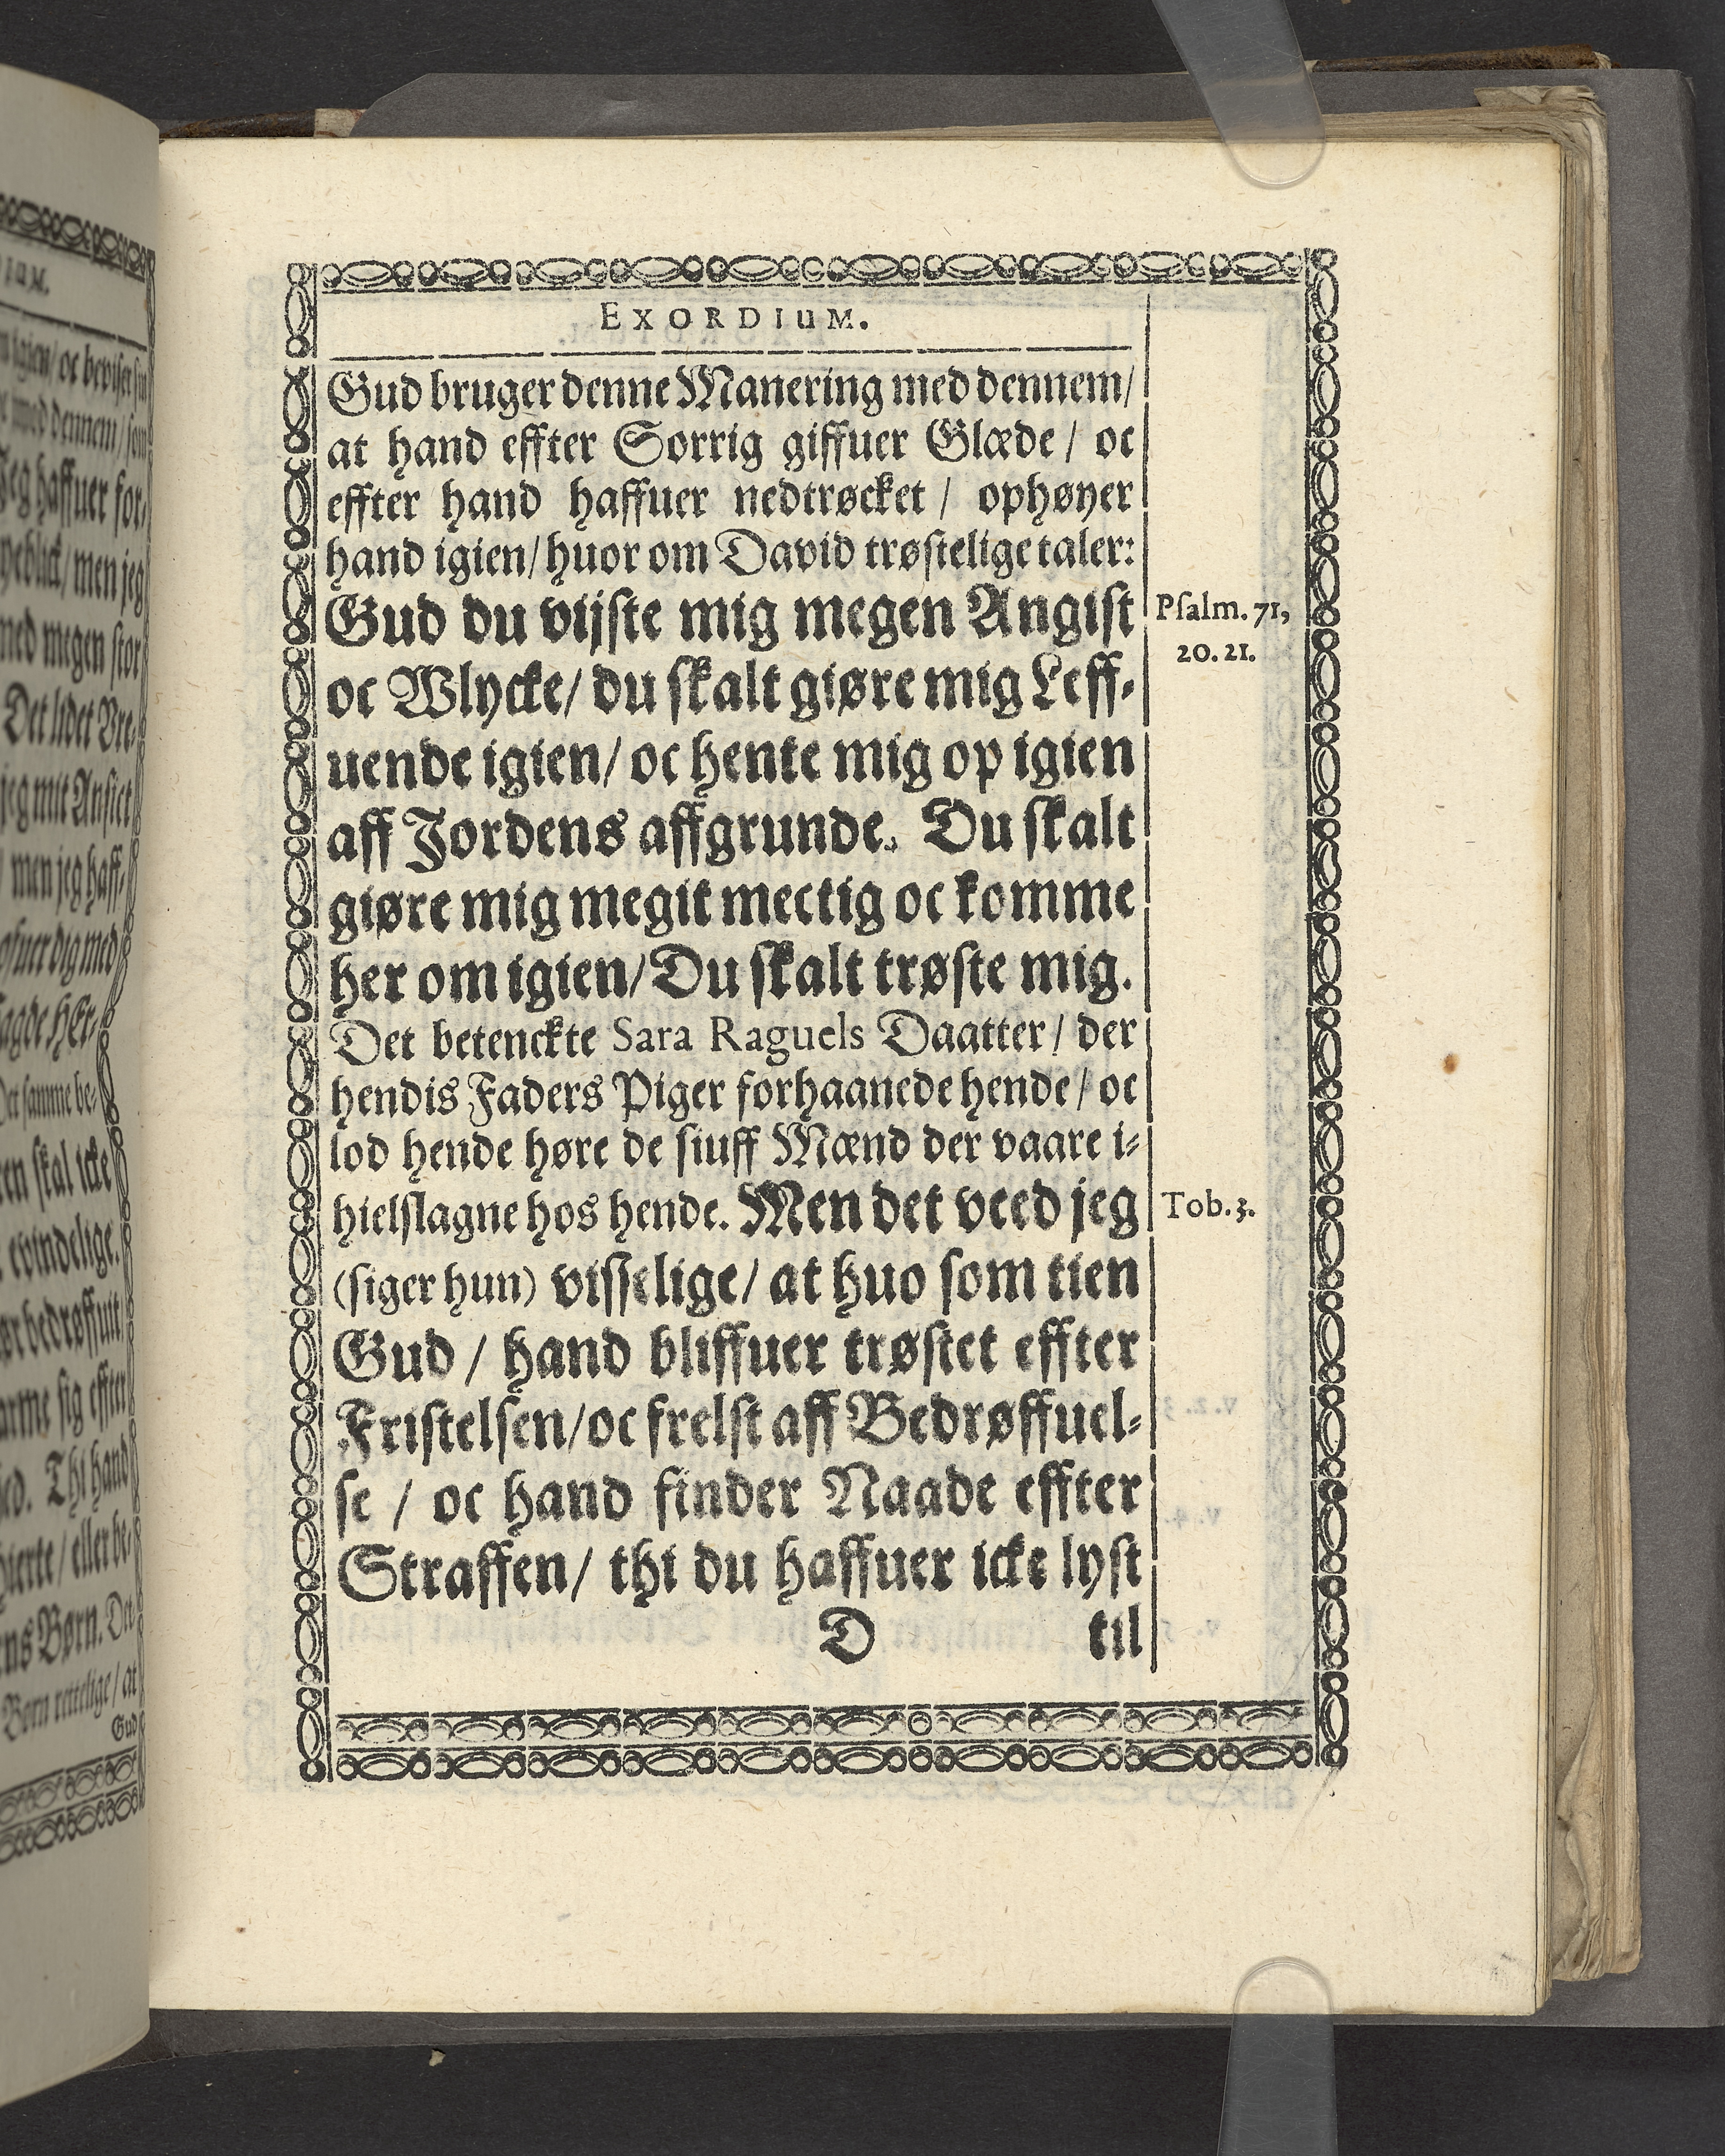 EXORDIUM.
Gud bruger denne Manering med dennem/
at hand effter Sorrig giffuer Glæde / oc
effter hand haffuer nedtrøcket / ophøyer
hand igien/ huor om David trøstelige taler:
Gud du vijste mig megen Angist
Psalm. 71,
20. 21.
oc Wlycke/ du skalt giøre mig Leff-
uende igien/ oc hente mig op igien
aff Jordens affgrunde. Du skalt
giøre mig megit mectig oc komme
her om igien/ Du skalt trøste mig.
Det betenckte Sara Raguels Daatter/ der
hendis Faders Piger forhaanede hende/ oc
lod hende høre de siuff Mænd der vaare i-
hielslagne hos hende. Men det veed jeg
Tob. 3.
(siger hun) visselige/ at huo som tien
Gud / hand bliffuer trøstet effter
Fristelsen/ oc frelst aff Bedrøffuel-
se / oc hand finder Naade effter
Straffen/ thi du haffuer icke lyst
D til
igien/ oc beviser
med dennem / som
Jeg haffuer for-
men jeg
med megen stor
Det lidet Vre-
jeg mit Ansict
men jeg haff-
ofuer dig med
sagde HEr-
Det samme be-
skal icke
evindelige.
bedrøffuit
sig effter
Thi hand
hierte / eller be-
Børn. Det
Børn rettelige / at
Gud